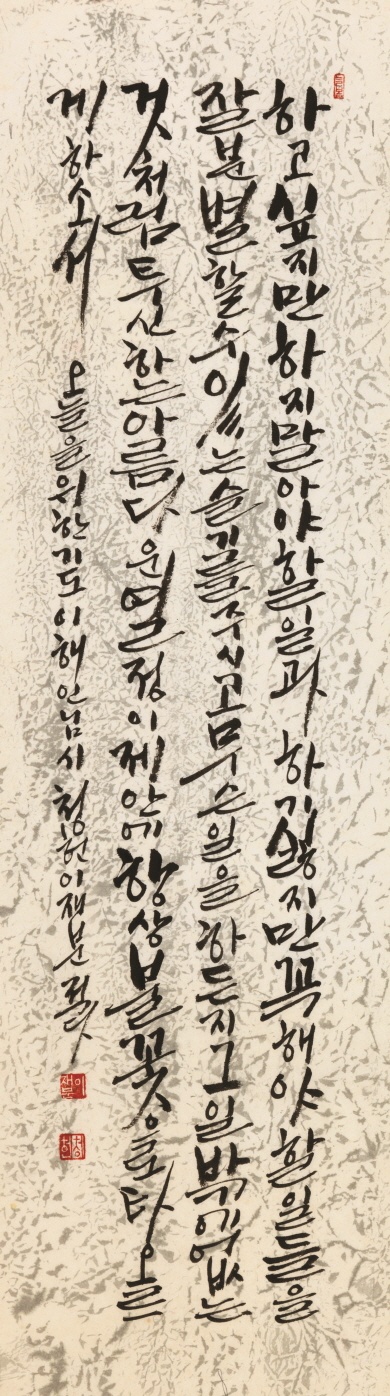 하고싶지만 하지말아야할일과 하기싫지만 꼭해야할일들을
잘분별할수있는슬기를주시고 무슨일을하든지그일밖에없는
것처럼투신하는아름다운열정이제안에항상불꽃으로타오르
게하소서 오늘을위한기도이해인님시 청헌이재분절
이재분